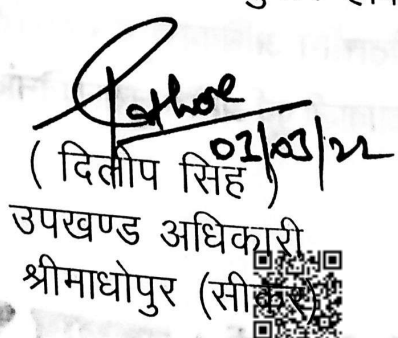 Rathore
01/03/22
( दिलीप सिंह )
उपखण्ड अधिकारी
श्रीमाधोपुर (सीकर)